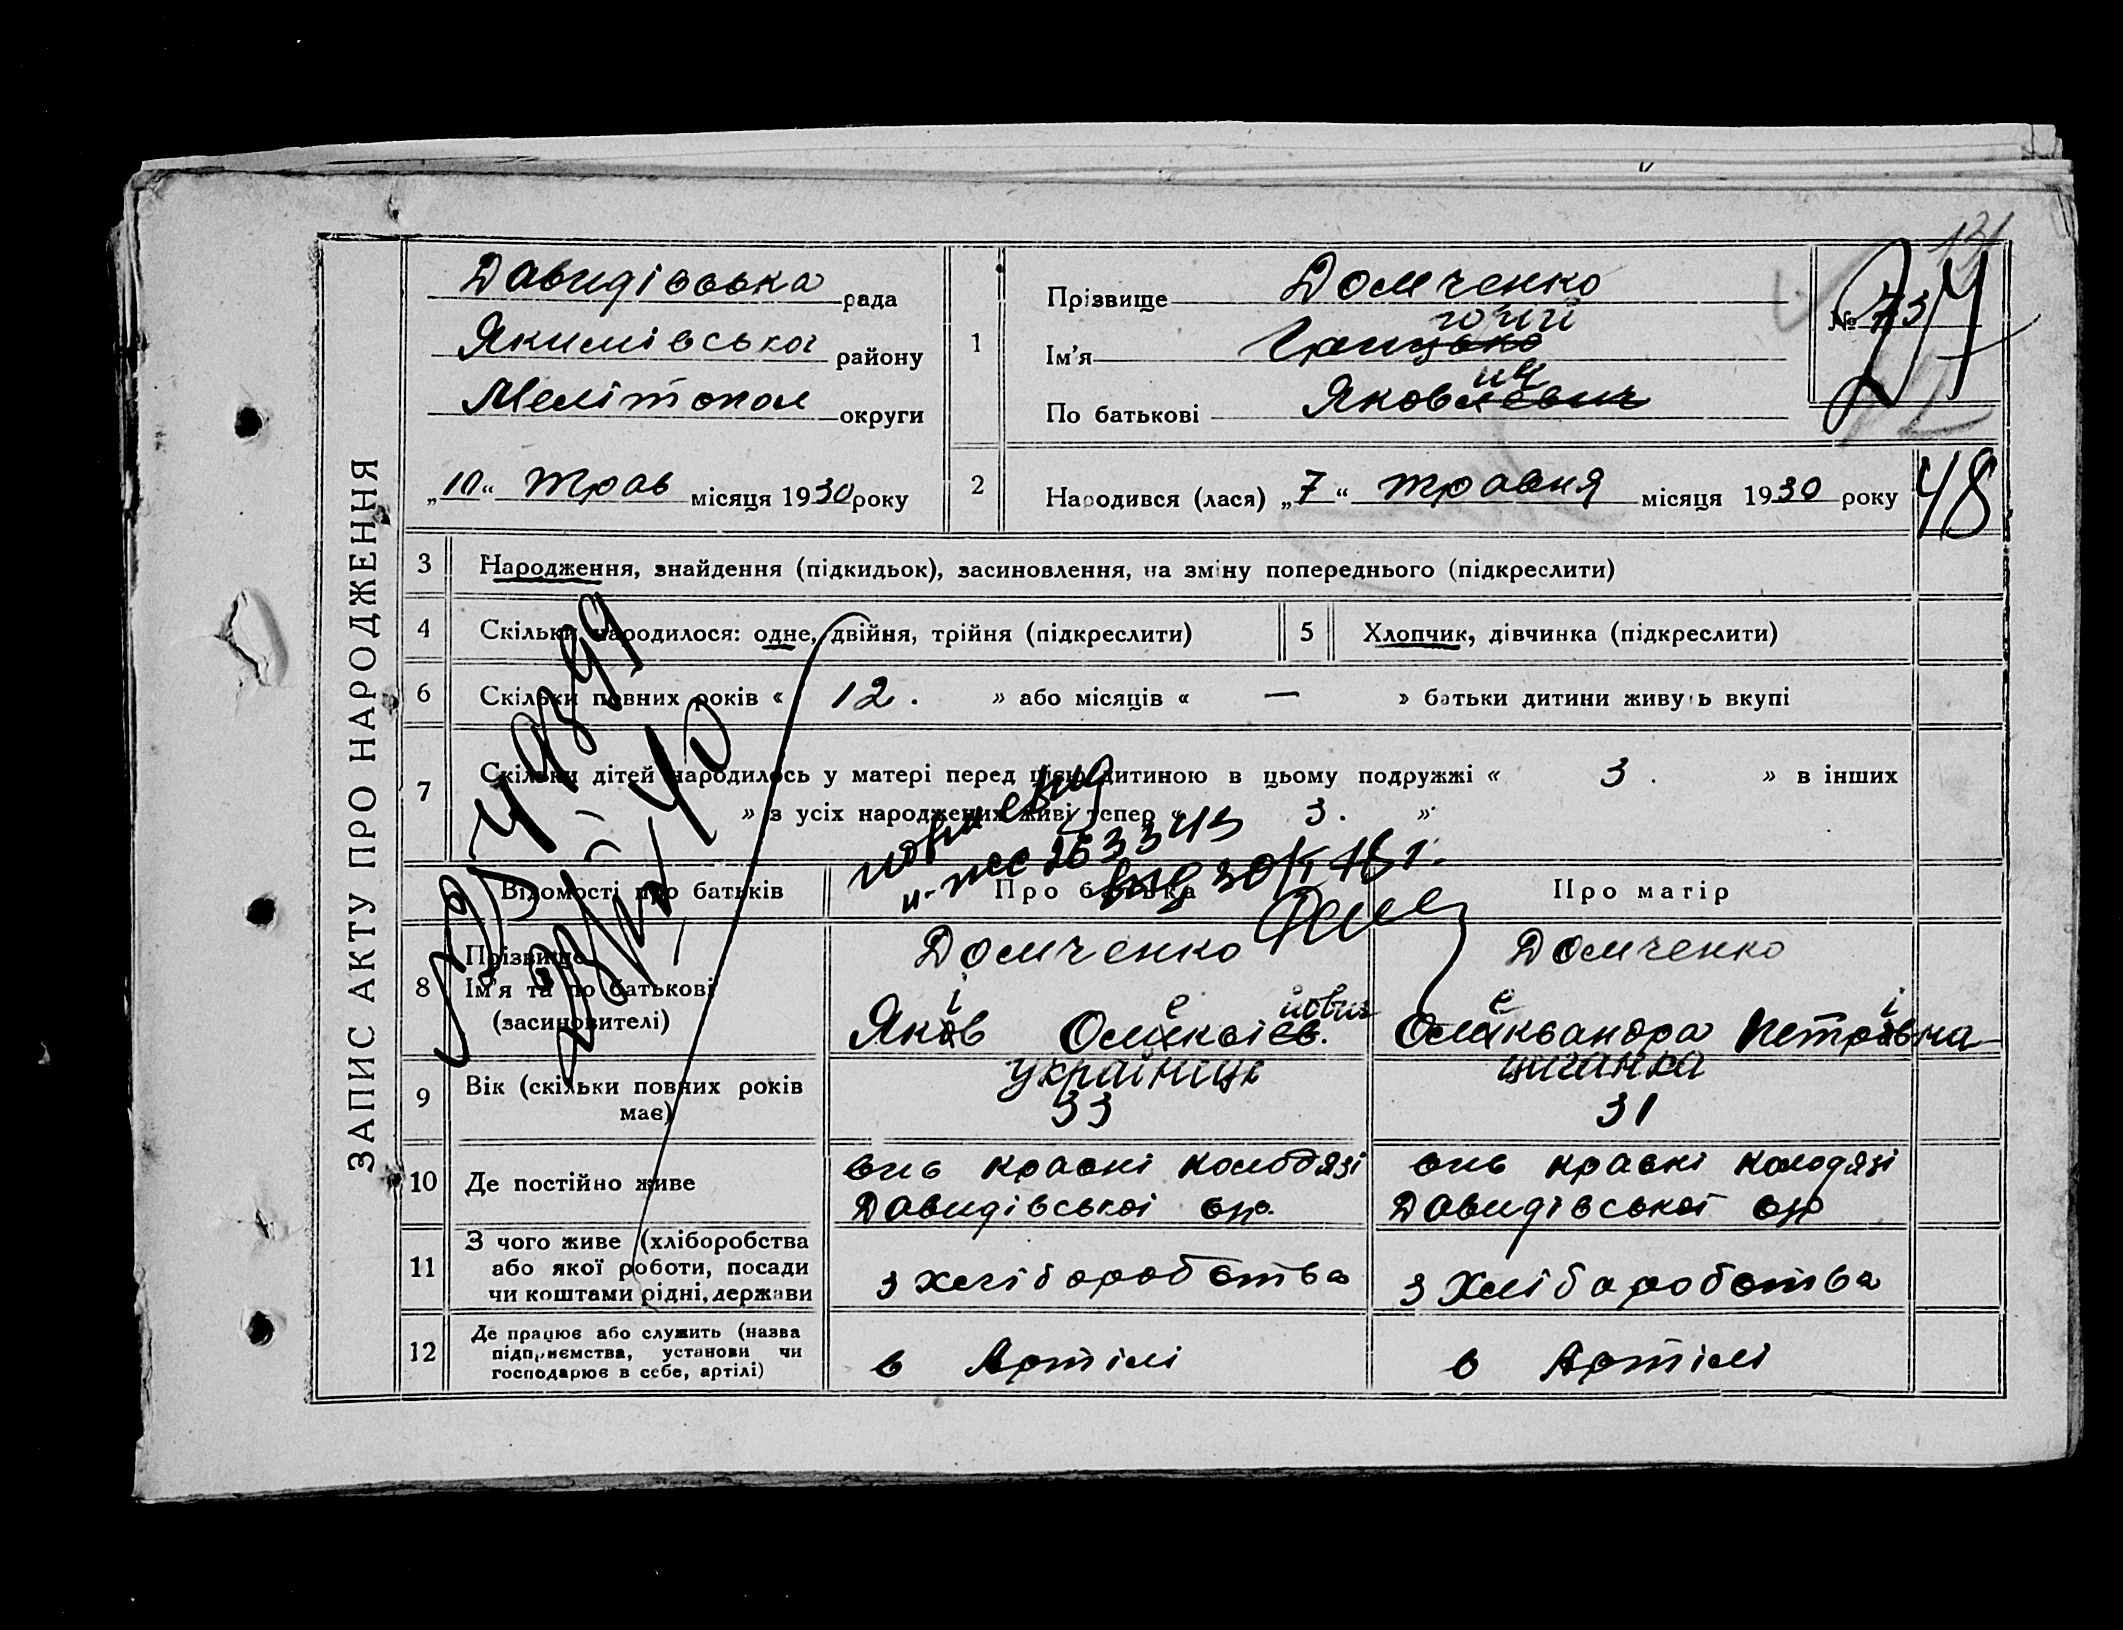 ЗАПИС АКТУ ПРО НАРОДЖЕННЯ
Давидівська рада
Якимівська району
Мелітопол округи
„10“ трав місяця 1930 року
1
Прізвище Домченко
горій
Ім'я Грицько
ич
По батькові Яковлевич
№ 73
2
Народився (лася) „7“ травня місяця 1930 року
48
3 Народження, знайдення (підкидьок), засиновлення, на зміну попереднього (підкреслити)
4 Скільки народилося: одне, двійня, трійня (підкреслити)
5 Хлопчик, дівчинка (підкреслити)
6 Скільки повних років « 12. » або місяців « — » батьки дитини живуть вкупі
7 Скільки дітей народилось у матері перед цією дитиною в цьому подружжі « 3. » в інших
» з усіх народжених живі тепер « 3. »
Відомості про батьків
Про батька
Про матір
8 Прізвище
Ім'я та по батькові
(засиновителі)
Домченко
Яків Олексійович
Домченко
Олександра Петрівна
9 Вік (скільки повних років має)
українець
33
циганка
31
10 Де постійно живе
вис красні колодязі
Давидівської с/р.
вис красні колодязі
Давидівської с/р
11 З чого живе (хліборобства
або якої роботи, посади
чи коштами рідні, держави
з хліборобства
з хліборобства
12 Де працює або служить (назва
підприємства, установи чи
господарює в себе, артілі)
в Артілі
в Артілі